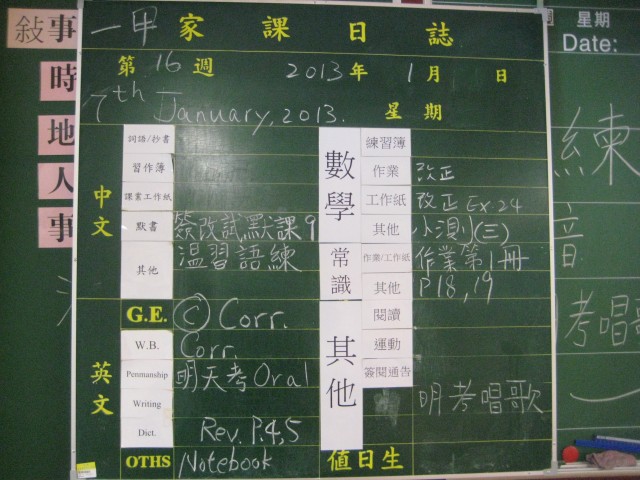 一甲 家課日誌
第 16 週 2013 年 1 月 日
7th January, 2013. 星期
中文
詞語/抄書
習作簿
課業工作紙
默書 簽改試默課9
其他 温習語練
英文
G.E. © Corr.
W.B. Corr.
Penmanship 明天考Oral
Writing
Dict. Rev. P.4,5
OTHS Notebook
數學
練習簿
作業 改正
工作紙 改正 Ex.24
其他 小測(三)
常識
作業/工作紙 作業第1冊
其他 P18,19
其他
閱讀
運動
簽閱通告
明考唱歌
值日生
敍事
時
地
人
事
星期
Date:
練
音
考唱